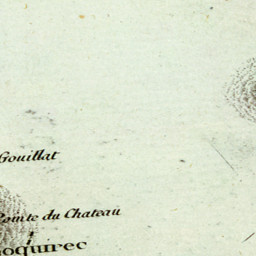 Gouillat
Pointe du Chateau
oquirec